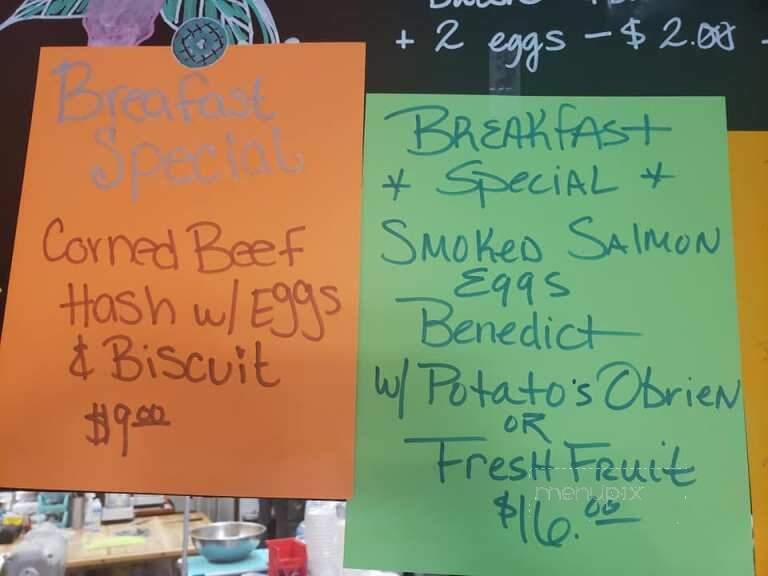 + 2 eggs - $2.00
Breafast
Special
Corned Beef
Hash w/ Eggs
& Biscuit
$9.00
BREAKfAST
* SpeciAL *
SMOKED SALMON
Eggs
Benedict
w/ Potato's Obrien
OR
FresH Fruit
$16.00
menupix